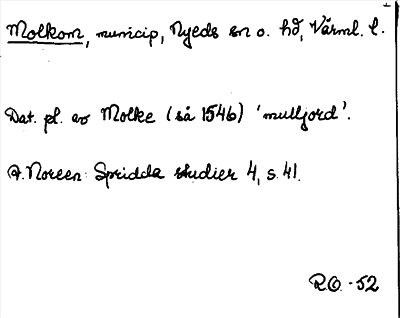 Molkom, municip, Nyeds sn o. hd, Värml. l.
Dat. pl. av Molke (så 1546) 'mulljord'.
A. Noreen: Spridda studier 4, s. 41.
R.O. -52